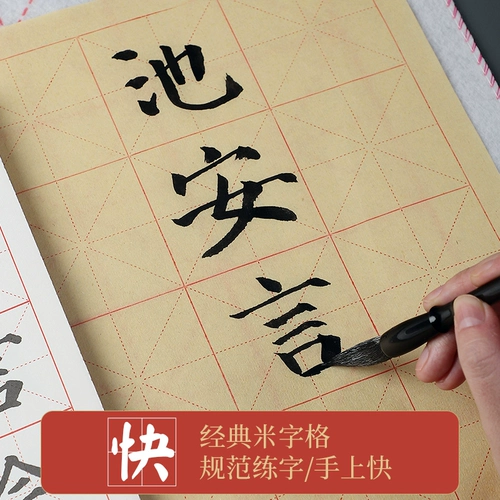 池
安
言
言
快
经典米字格
规范练字/手上快